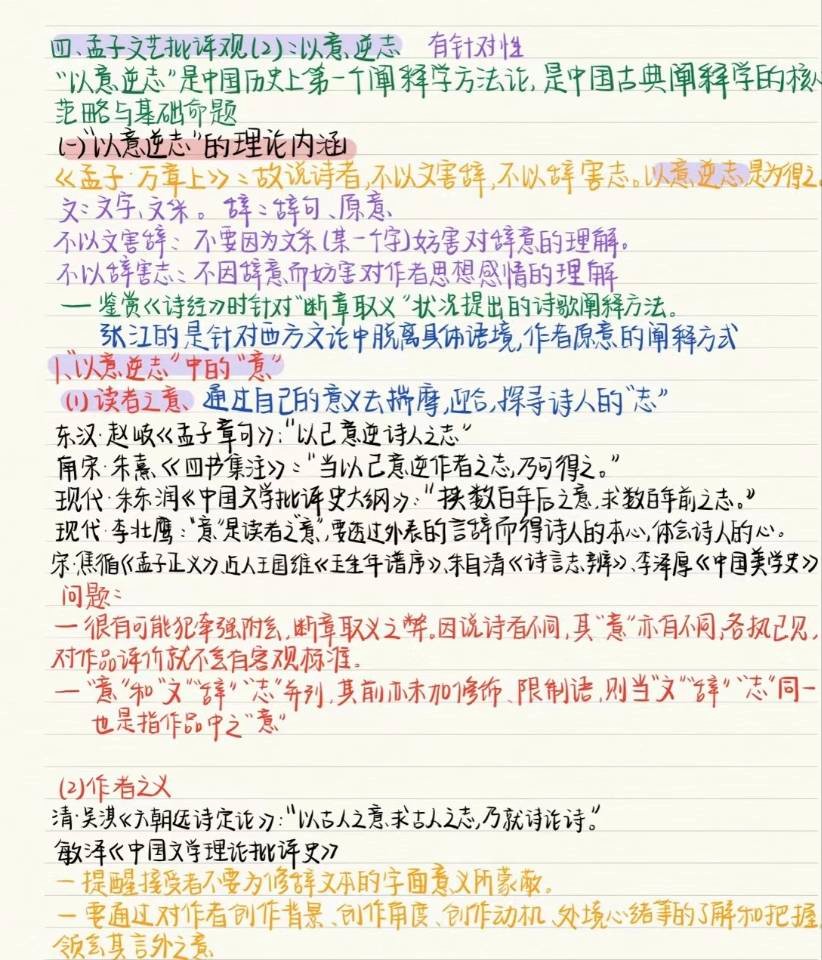 四、孟子文艺批评观(2)：以意逆志 有针对性
"以意逆志"是中国历史上第一个阐释学方法论,是中国古典阐释学的核心
范畴与基础命题
(一)"以意逆志"的理论内涵
《孟子·万章上》：故说诗者,不以文害辞,不以辞害志。以意逆志,是为得之。
文：文字、文采。辞：辞句、原意
不以文害辞：不要因为文采(某一个字)妨害对辞意的理解。
不以辞害志：不因辞意而妨害对作者思想感情的理解
— 鉴赏《诗经》时针对"断章取义"状况提出的诗歌阐释方法。
张江的是针对西方文论中脱离具体语境,作者原意的阐释方式
1、"以意逆志"中的"意"
(1)读者之意、通过自己的意义去揣摩,迎合,探寻诗人的"志"
东汉·赵岐《孟子章句》："以己意逆诗人之志"
南宋·朱熹《四书集注》："当以己意逆作者之志,乃可得之。"
现代·朱东润《中国文学批评史大纲》："挟数百年后之意,求数百年前之志。"
现代·李壮鹰："意"是读者之"意",要透过外表的言辞而得诗人的本心,体会诗人的心。
宋·焦循《孟子正义》、近人王国维《玉生年谱序》、朱自清《诗言志辨》、李泽厚《中国美学史》
问题：
— 很有可能犯牵强附会,断章取义之弊。因说诗者不同,其"意"亦有不同,各执己见,
对作品评价就不会有客观标准。
— "意"和"文""辞""志"并列,其前亦未加修饰、限制语,则当"文""辞""志"同一
也是指作品中之"意"
(2)作者之义
清·吴淇《六朝选诗定论》："以古人之意求古人之志,乃就诗论诗。"
敏泽《中国文学理论批评史》
— 提醒接受者不要为修辞文本的字面意义所蒙蔽。
— 要通过对作者创作背景、创作角度、创作动机、处境心绪等的了解和把握,
领会其言外之意